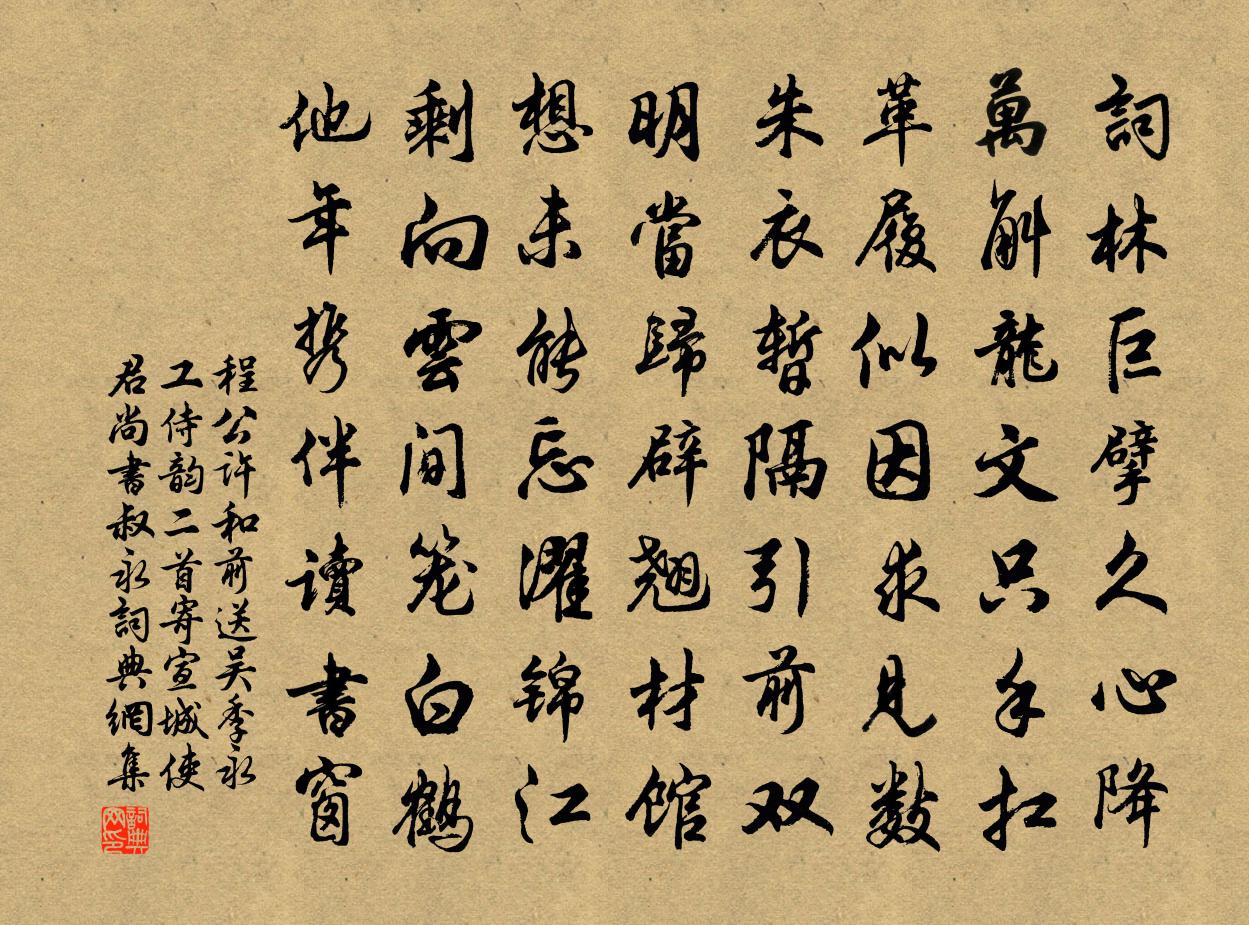 詞林巨擘久心降
萬斛龍文只手扛
革履似因求見數
朱衣暫隔引前双
明當歸辟翹材館
想未能忘濯錦江
剩向雲間笼白鶴
他年携伴讀書窗
程公許和前送吴季永
工侍韵二首寄宣城使
君尚書叔永詞典網集
詞典
网印